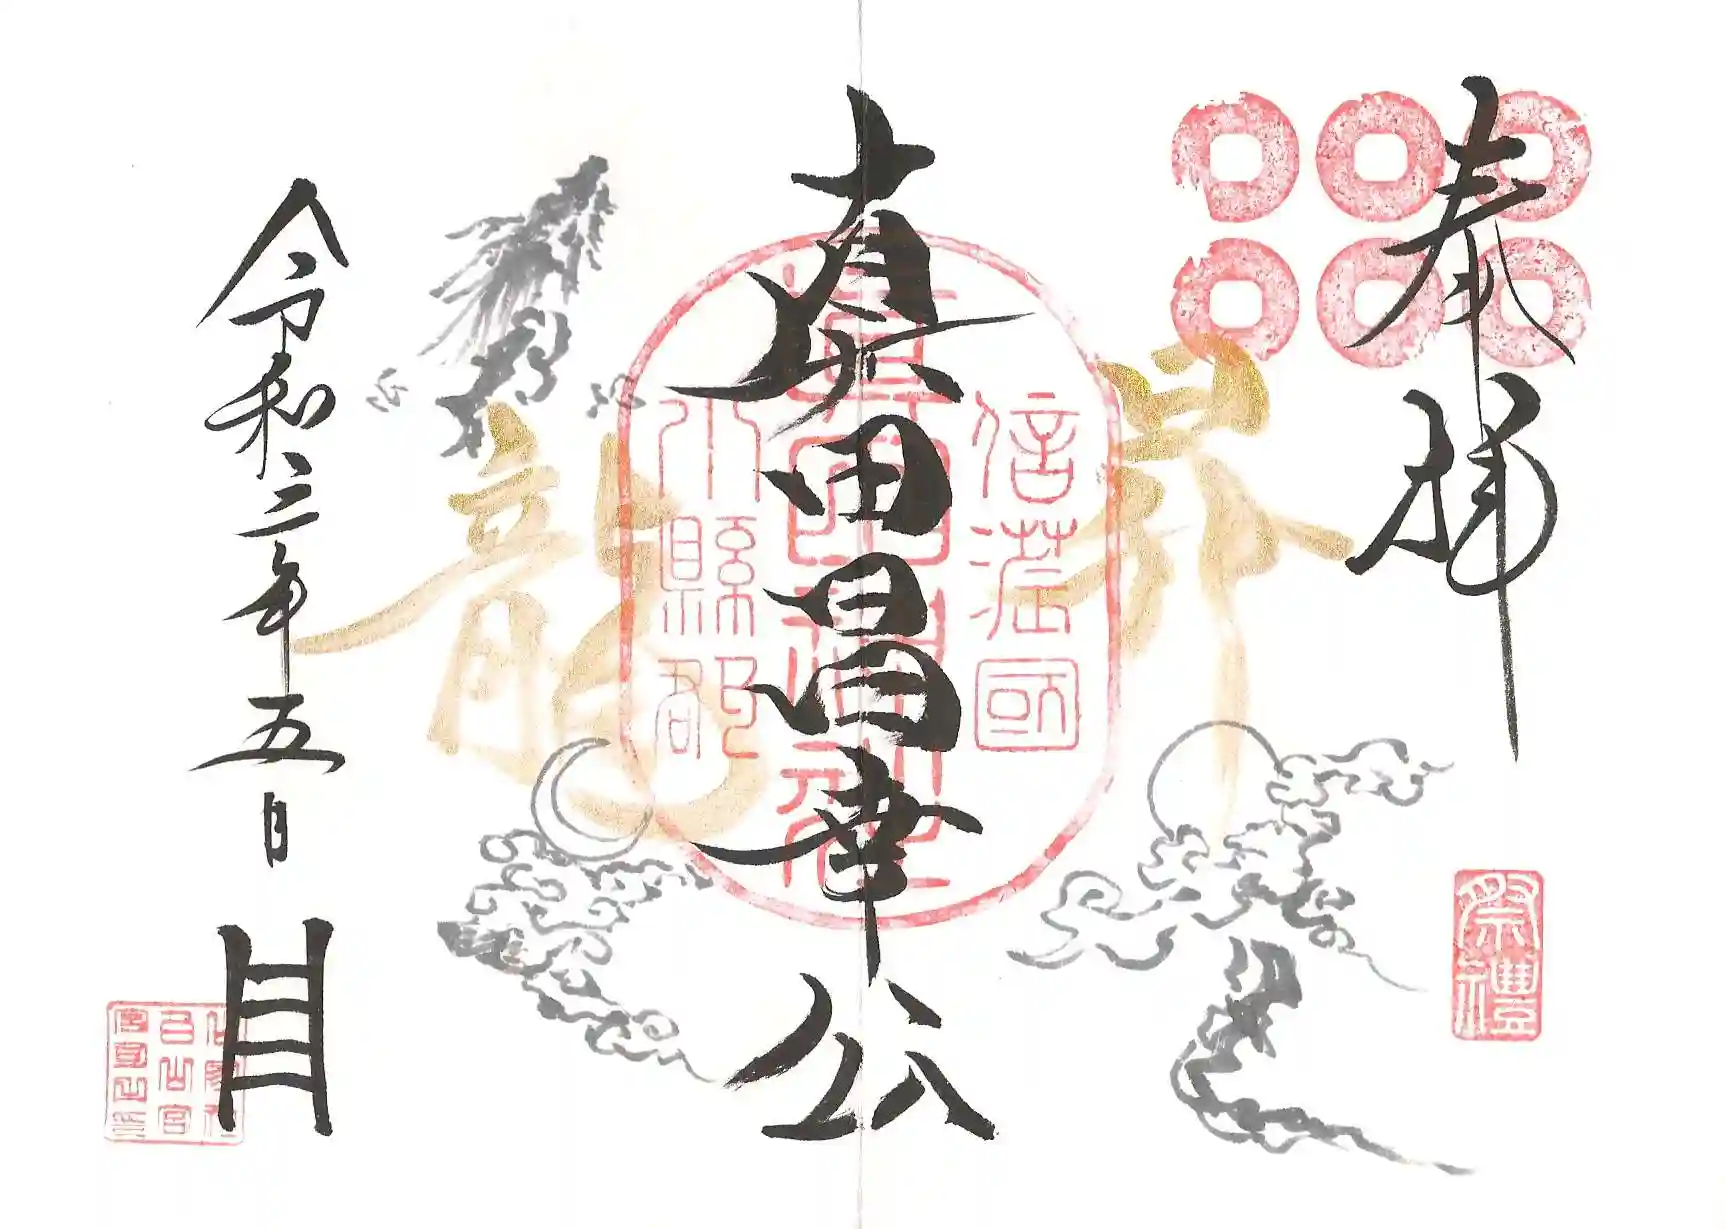 奉拝
祭禮
昇龍
信濃國
真田昌幸公
眞田神社
小縣郡
令和三年五月